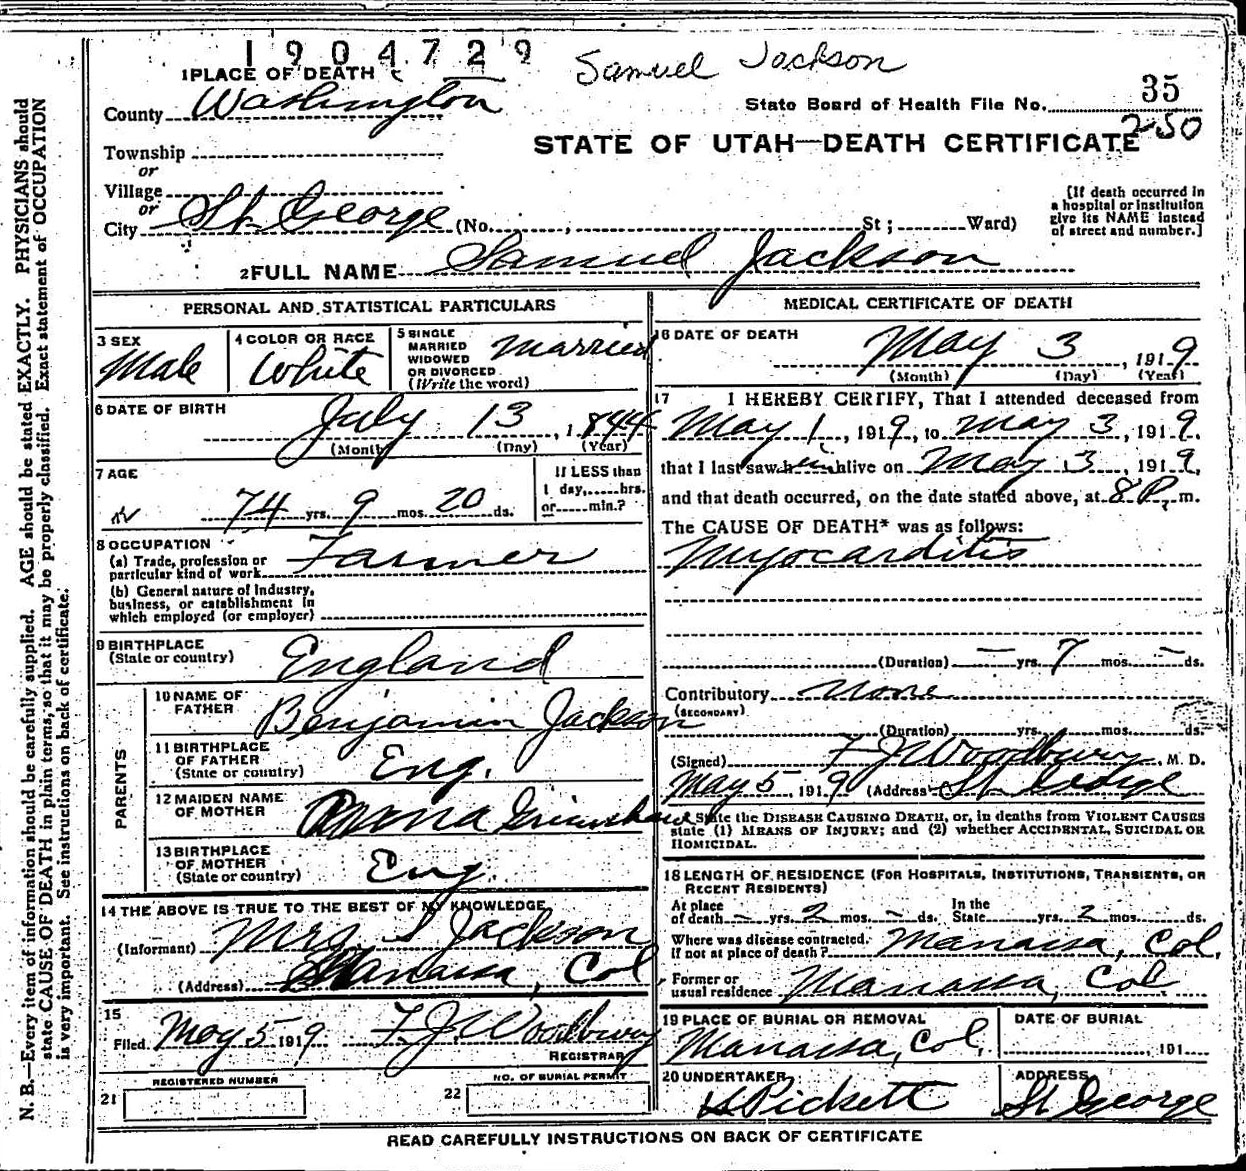 1904729
Samuel Jackson
1 PLACE OF DEATH
County Washington
State Board of Health File No. 35
250
STATE OF UTAH—DEATH CERTIFICATE
Township
or
Village
or
City St. George (No. , St; Ward)
[If death occurred in
a hospital or institution
give its NAME instead
of street and number.]
2 FULL NAME Samuel Jackson
PERSONAL AND STATISTICAL PARTICULARS
3 SEX
Male
4 COLOR OR RACE
White
5 SINGLE
MARRIED
WIDOWED
OR DIVORCED
(Write the word)
Married
6 DATE OF BIRTH
July 13, 1844
(Month) (Day) (Year)
7 AGE
74 yrs. 9 mos. 20 ds.
If LESS than
1 day, hrs.
or min.?
8 OCCUPATION
(a) Trade, profession or
particular kind of work Farmer
(b) General nature of Industry,
business, or establishment in
which employed (or employer)
9 BIRTHPLACE
(State or country) England
PARENTS
10 NAME OF
FATHER Benjamin Jackson
11 BIRTHPLACE
OF FATHER
(State or country) Eng.
12 MAIDEN NAME
OF MOTHER
13 BIRTHPLACE
OF MOTHER
(State or country) Eng.
14 THE ABOVE IS TRUE TO THE BEST OF MY KNOWLEDGE
(Informant) Mrs S Jackson
(Address) Manassa, Col
15
Filed May 5 1919 F. J. Woodbury
REGISTRAR
REGISTERED NUMBER
21
NO. OF BURIAL PERMIT
22
MEDICAL CERTIFICATE OF DEATH
16 DATE OF DEATH
May 3, 1919
(Month) (Day) (Year)
17 I HEREBY CERTIFY, That I attended deceased from
May 1, 1919, to May 3, 1919.
that I last saw him alive on May 3, 1919,
and that death occurred, on the date stated above, at 8 P. m.
The CAUSE OF DEATH* was as follows:
Myocarditis
(Duration) — yrs. 7 mos. — ds.
Contributory None
(SECONDARY)
(Duration) yrs. mos. ds.
(Signed) F J Woodbury, M. D.
May 5, 1919 (Address) St. George
State the DISEASE CAUSING DEATH, or, in deaths from VIOLENT CAUSES
state (1) MEANS OF INJURY; and (2) whether ACCIDENTAL, SUICIDAL OR
HOMICIDAL.
18 LENGTH OF RESIDENCE (FOR HOSPITALS, INSTITUTIONS, TRANSIENTS, OR
RECENT RESIDENTS)
At place
of death — yrs. 2 mos. — ds.
In the
State yrs. 2 mos. ds.
Where was disease contracted.
If not at place of death? Manassa, Col,
Former or
usual residence Manassa, Col.
19 PLACE OF BURIAL OR REMOVAL
Manassa, Col.
DATE OF BURIAL
191
20 UNDERTAKER
Pickett
ADDRESS
St George
READ CAREFULLY INSTRUCTIONS ON BACK OF CERTIFICATE
N. B.—Every item of information should be carefully supplied. AGE should be stated EXACTLY. PHYSICIANS should
state CAUSE OF DEATH in plain terms, so that it may be properly classified. Exact statement of OCCUPATION
is very important. See instructions on back of certificate.